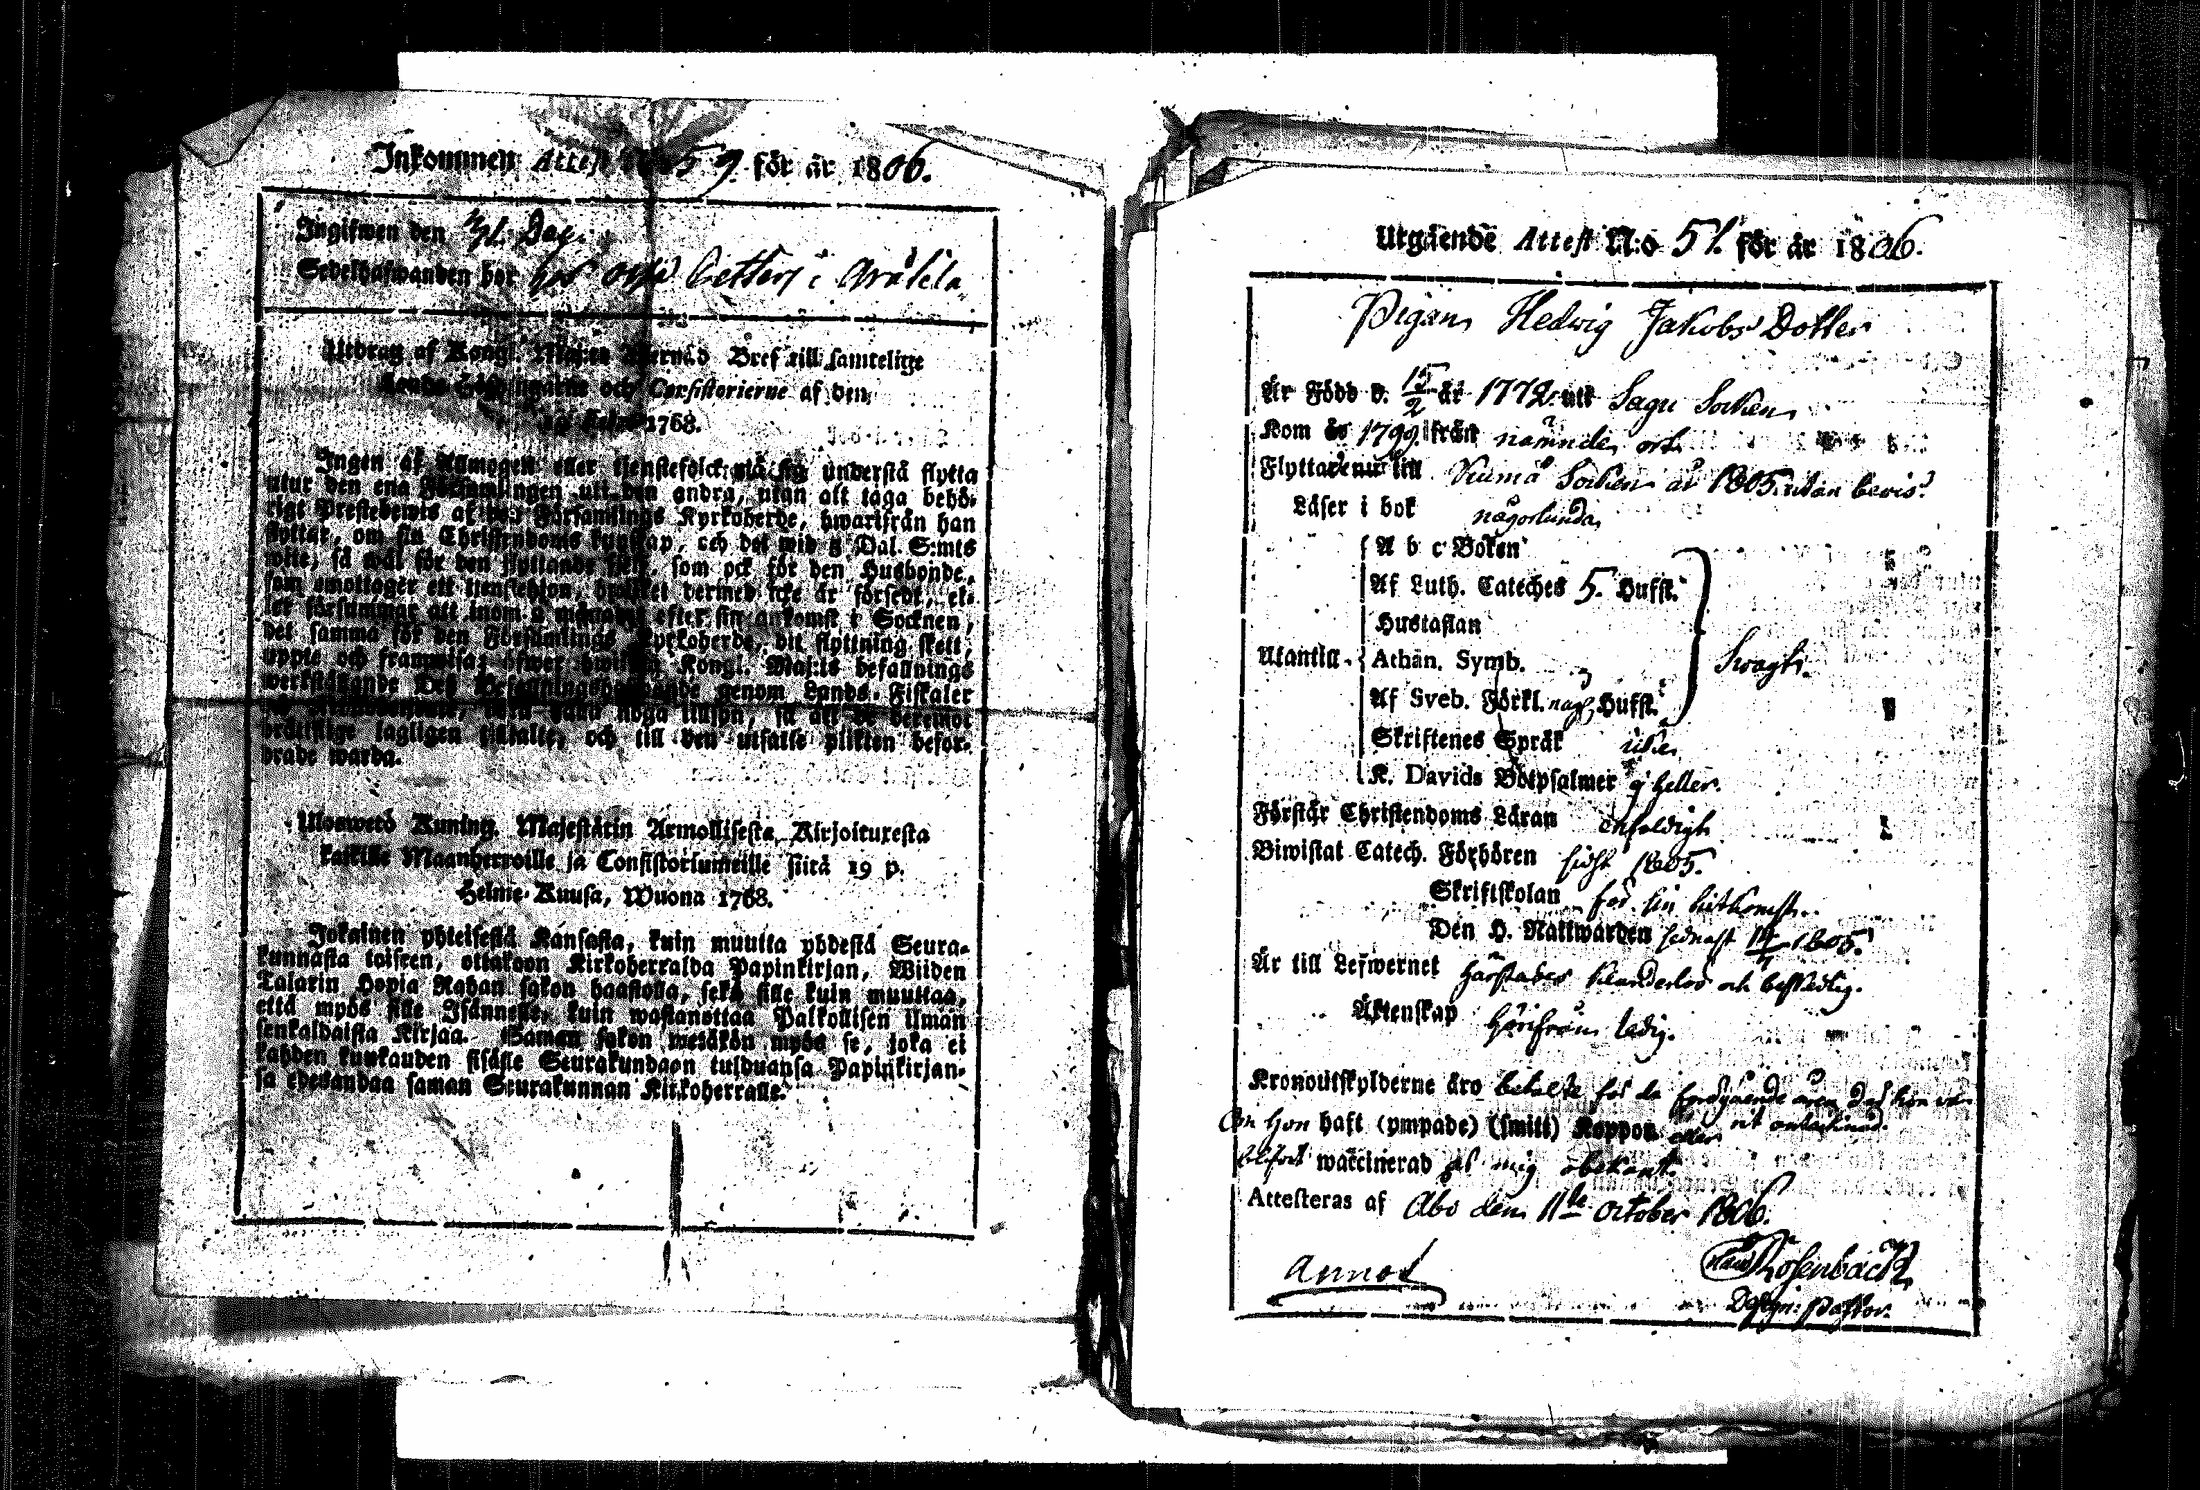 Inkommen Attest N:o 59 för år 1806.
Ingifwen den
Sedelhafwanden bor hos
Utdrag af Kongl. Maj:ts Bref till samtelige
och Consistorierne af den
1768.
Ingen af Allmogen eller tjenstefolck må sig understå flytta
utur den ena Församlingen uti den andra, utan att taga behö-
rigt Prestebewis af Församlings Kyrkoherde, hwarifrån han
flyttar, om sin Christendoms kunskap, och det wid 5 Dal. S:mts
wite, så wäl för den flyttande sielf, som ock för den Husbonde,
som emottager ett tienstehion, hwilket dermed icke är försedt, el-
ler försummar att inom 2 månader efter sin ankomst i Socknen,
det samma för den Församlings Kyrkoherde, dit flyttning skett,
uppte och framwisa; öfwer hwilket Kongl. Maj:ts befallnings
werkställande Des Befallningshafwande genom Lands-Fiskaler
noga tilsyn, så att de deremot
bråttslige lagligen tiltalte, och till den utsatte plikten befor-
drade warda.
Uloswetö Kuning. Majestätin Armollisesta Kirjoituxesta
kaikille Maanherroille ja Consistoriumeille siitä 19 p.
Helme-Kuusa, Wuona 1768.
Jokainen yhteisestä Kansasta, kuin muutta yhdestä Seura-
kunnasta toiseen, ottakoon Kirkoherralda Papinkirjan, Wiiden
Talarin Hopia Rahan sakon haastolla, sekä sille kuin muuttaa,
että myös sille Isännelle, kuin wastanottaa Palkollisen ilman
senkaldaista Kirjaa. Saman sakon wetäkön myös se, joka ei
kahden kuukauden sisälle Seurakundaan tulduansa Papinkirjan-
sa edesandaa saman Seurakunnan Kirkoherralle.
Utgående Attest N:o 51. för år 1806.
Pigan Hedwig Jakobs Dotter
Är Född d. 15/2 år 1772 uti Sagu Socken
Kom år 1799 ifrån nämnde ort
Flyttar nu till Kiumå Socken år 1805 utan bevis.
Läser i bok någorlunda
A b c Boken
Af Luth. Cateches 5. Hufst.
Hustaflan
Utantill Athan. Symb. Swagt.
Af Sveb. Förkl. någ. Hufst.
Skriftenes Språk icke
K. Davids Botpsalmer ej heller.
Förstår Christendoms Läran enfaldigt
Biwistat Catech. Förhören sidst 1805.
Skriftskolan för sin hitkomst.
Den H. Nattwarden sednast 1805.
Är till Lefwernet härstädes klanderlös och beskedlig.
Äktenskap härifrån ledig.
Kronoutskylderne äro betalte för de föregående åren då hon var
Om hon haft (ympade) (smitt) Koppor eller
blifvit waccinerad är mig obekant.
Attesteras af Åbo den 11te October 1806.
Annot
Rosenback
Design: Pastor.